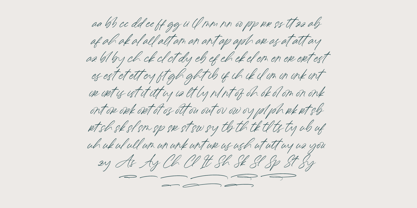 aa bb cc dd ee ff gg ii ll mm nn oo pp rr ss tt zz ab
af ah ak al all alt am an ant ap aph ar as at att ay
az bl by ch ck cl ct dy eb ef eh ek el em en er ent est
es est et ett ey ft gh ght ib if ih ik il im in ink int
ir irt is ist it itt iy iz lt ly nl nt of oh ok ol om on onk
ont or ork ort ot os ott ou out ov ow oy pl ph rk rt sb
rt sh sk sl sm sp sn st su sy tb th tk tl ts ty ub uf
uh uk ul um un unk unt ur us ush ut utt uy uz you
zy As Ay Ch Cl It Sh Sk Sl Sp St Sy